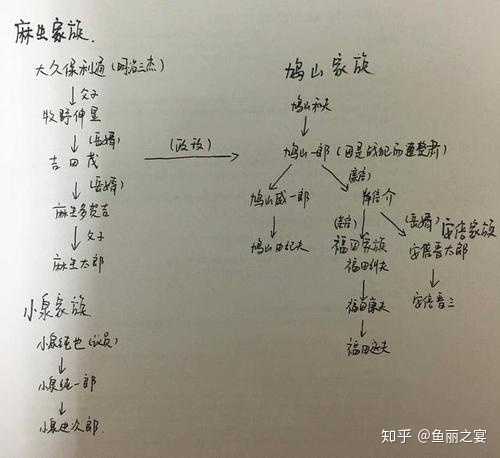 麻生家族.
大久保利通(明治三杰)
父子
牧野伸显
(岳婿)
吉田茂
(岳婿)
麻生多贺吉
父子
麻生太郎
(政敌)
鸠山家族
鸠山和夫
鸠山一郎(因是战犯而遭整肃)
鸠山威一郎
鸠山由纪夫
岸信介
福田家族
福田赳夫
福田康夫
福田达夫
(岳婿)
安倍家族
安倍晋太郎
安倍晋三
小泉家族
小泉纯也(议员)
小泉纯一郎
小泉进次郎.
知乎 @鱼丽之宴